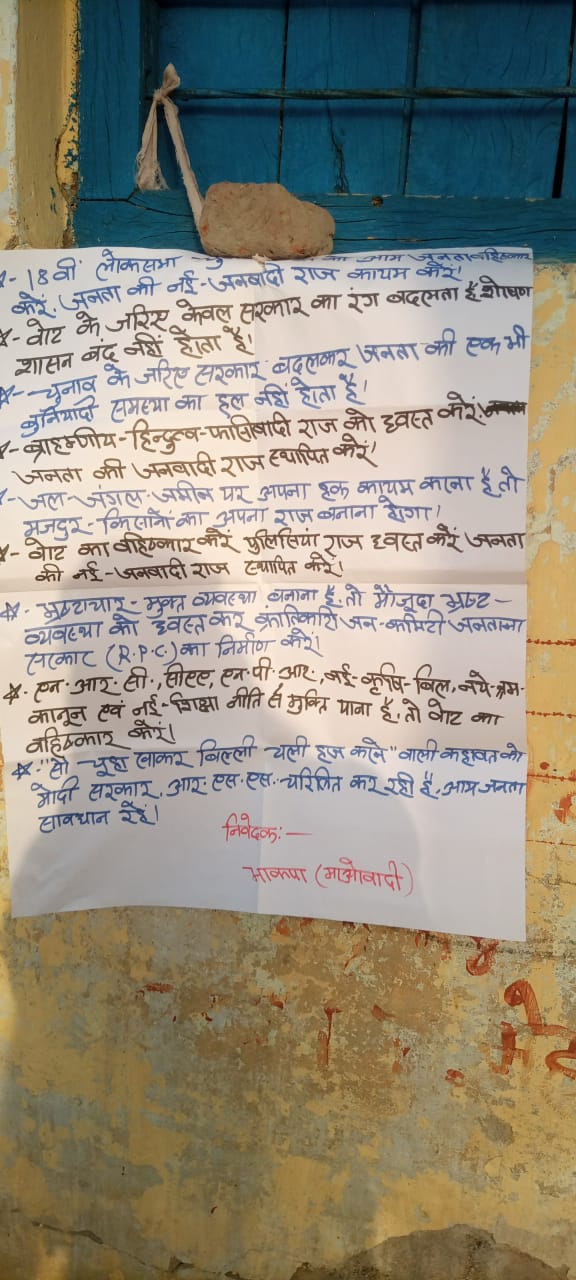 ☆- 18वीं लोकसभा आम जनता बहिष्कार
करें. जनता की नई-जनवादी राज कायम करें!
☆- वोट के जरिए केवल सरकार का रंग बदलता है. शोषण
शासन बंद नहीं होता है!
☆- चुनाव के जरिए सरकार बदलकर जनता की एक भी
बुनियादी समस्या का हल नहीं होता है!
☆- ब्राह्मणीय-हिन्दुत्व-फासिवादी राज को ध्वस्त करें!
जनता की जनवादी राज स्थापित करें!
☆- जल-जंगल-जमीन पर अपना हक कायम करना है, तो
मजदुर-किसानों का अपना राज बनाना होगा!
☆- वोट का बहिष्कार करें. पुलिसिया राज ध्वस्त करें. जनता
की नई-जनवादी राज स्थापित करें!
☆- भ्रष्टाचार-मुक्त व्यवस्था बनाना है, तो मौजूदा भ्रष्ट-
व्यवस्था को ध्वस्त कर क्रांतिकारी जन-कमिटी जनताना
सरकार (R.P.C) का निर्माण करें!
☆- एन.आर.सी., सीएए, एन.पी.आर., नई-कृषि-बिल, नये-श्रम-
कानून एवं नई-शिक्षा नीति से मुक्ति पाना है, तो वोट का
बहिष्कार करें!
☆- "सौ-चुहा खाकर बिल्ली चली हज करने" वाली कहावत को
मोदी सरकार, आर.एस.एस. चरितार्थ कर रही है, आम जनता
सावधान रहें!
निवेदक:—
भाकपा (माओवादी)